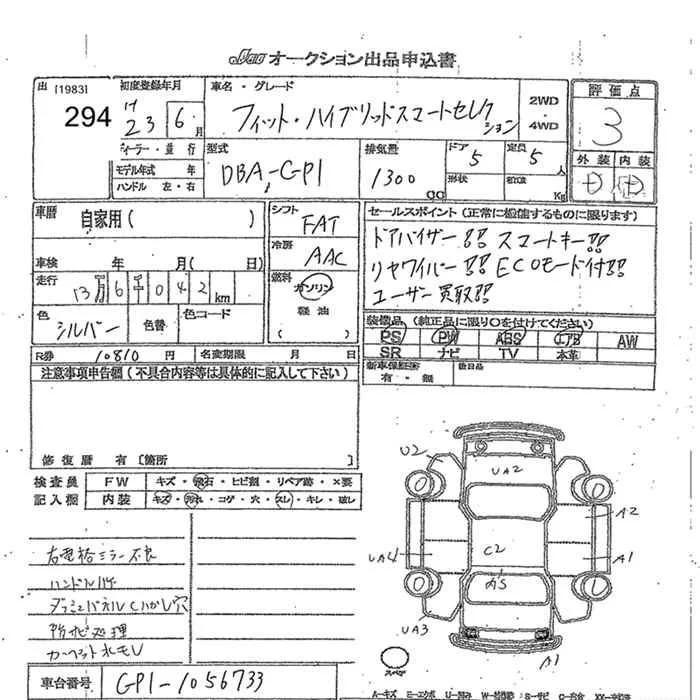 JAA オークション出品申込書
出 [1983] 294
初度登録年月 H 23 年 6 月
ディーラー・並行
モデル年式 年
ハンドル 左・右
車名・グレード
フィット・ハイブリッドスマートセレクション
2WD
4WD
型式 DBA-GP1
排気量 1300 CC
ドア 5
形状
定員 5 人
積載 Kg
評価点 3
外装 内装
D D
車歴 自家用( )
車検 年 月( 日)
走行 13万6千042km
色 シルバー 色替 色コード
シフト FAT
冷房 AAC
燃料 ガソリン
軽油
( )
セールスポイント (正常に機能するものに限ります)
ドアバイザー!! スマートキー!!
リヤワイパー!! ECOモード付!!
ユーザー買取!!
装備品 (純正品に限り○を付けてください)
PS PW ABS エアB AW
SR ナビ TV 本革
新車保証書 有・無
後日品
R券 10810 円 名変期限 月 日
注意事項申告欄 (不具合内容等は具体的に記入して下さい)
修復歴 有 [箇所 ]
検査員記入欄
FW キズ・飛石・ヒビ割・リペア跡・×要
内装 キズ・汚れ・コゲ・穴・スレ・キレ・破レ
右電格ミラー不良
ハンドルハゲ
ダッシュパネルはがし穴
内ナビ処理
カーペット水モレ
車台番号 GP1-1056733
U2
UA2
A2
C2
UA4
A1
AS
UA3
A1
スペア
A-キズ E-エクボ U-凹み